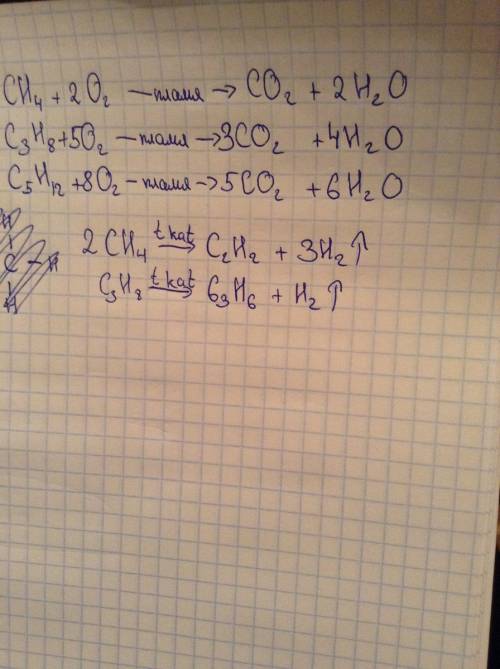 CH₄ + 2O₂ —пламя→ CO₂ + 2H₂O
C₃H₈+5O₂ —пламя→3CO₂ +4H₂O
C₅H₁₂ +8O₂ —пламя→5CO₂ +6H₂O
2CH₄ t kat→ C₂H₂ + 3H₂↑
C₃H₈ t kat→ C₃H₆ + H₂↑